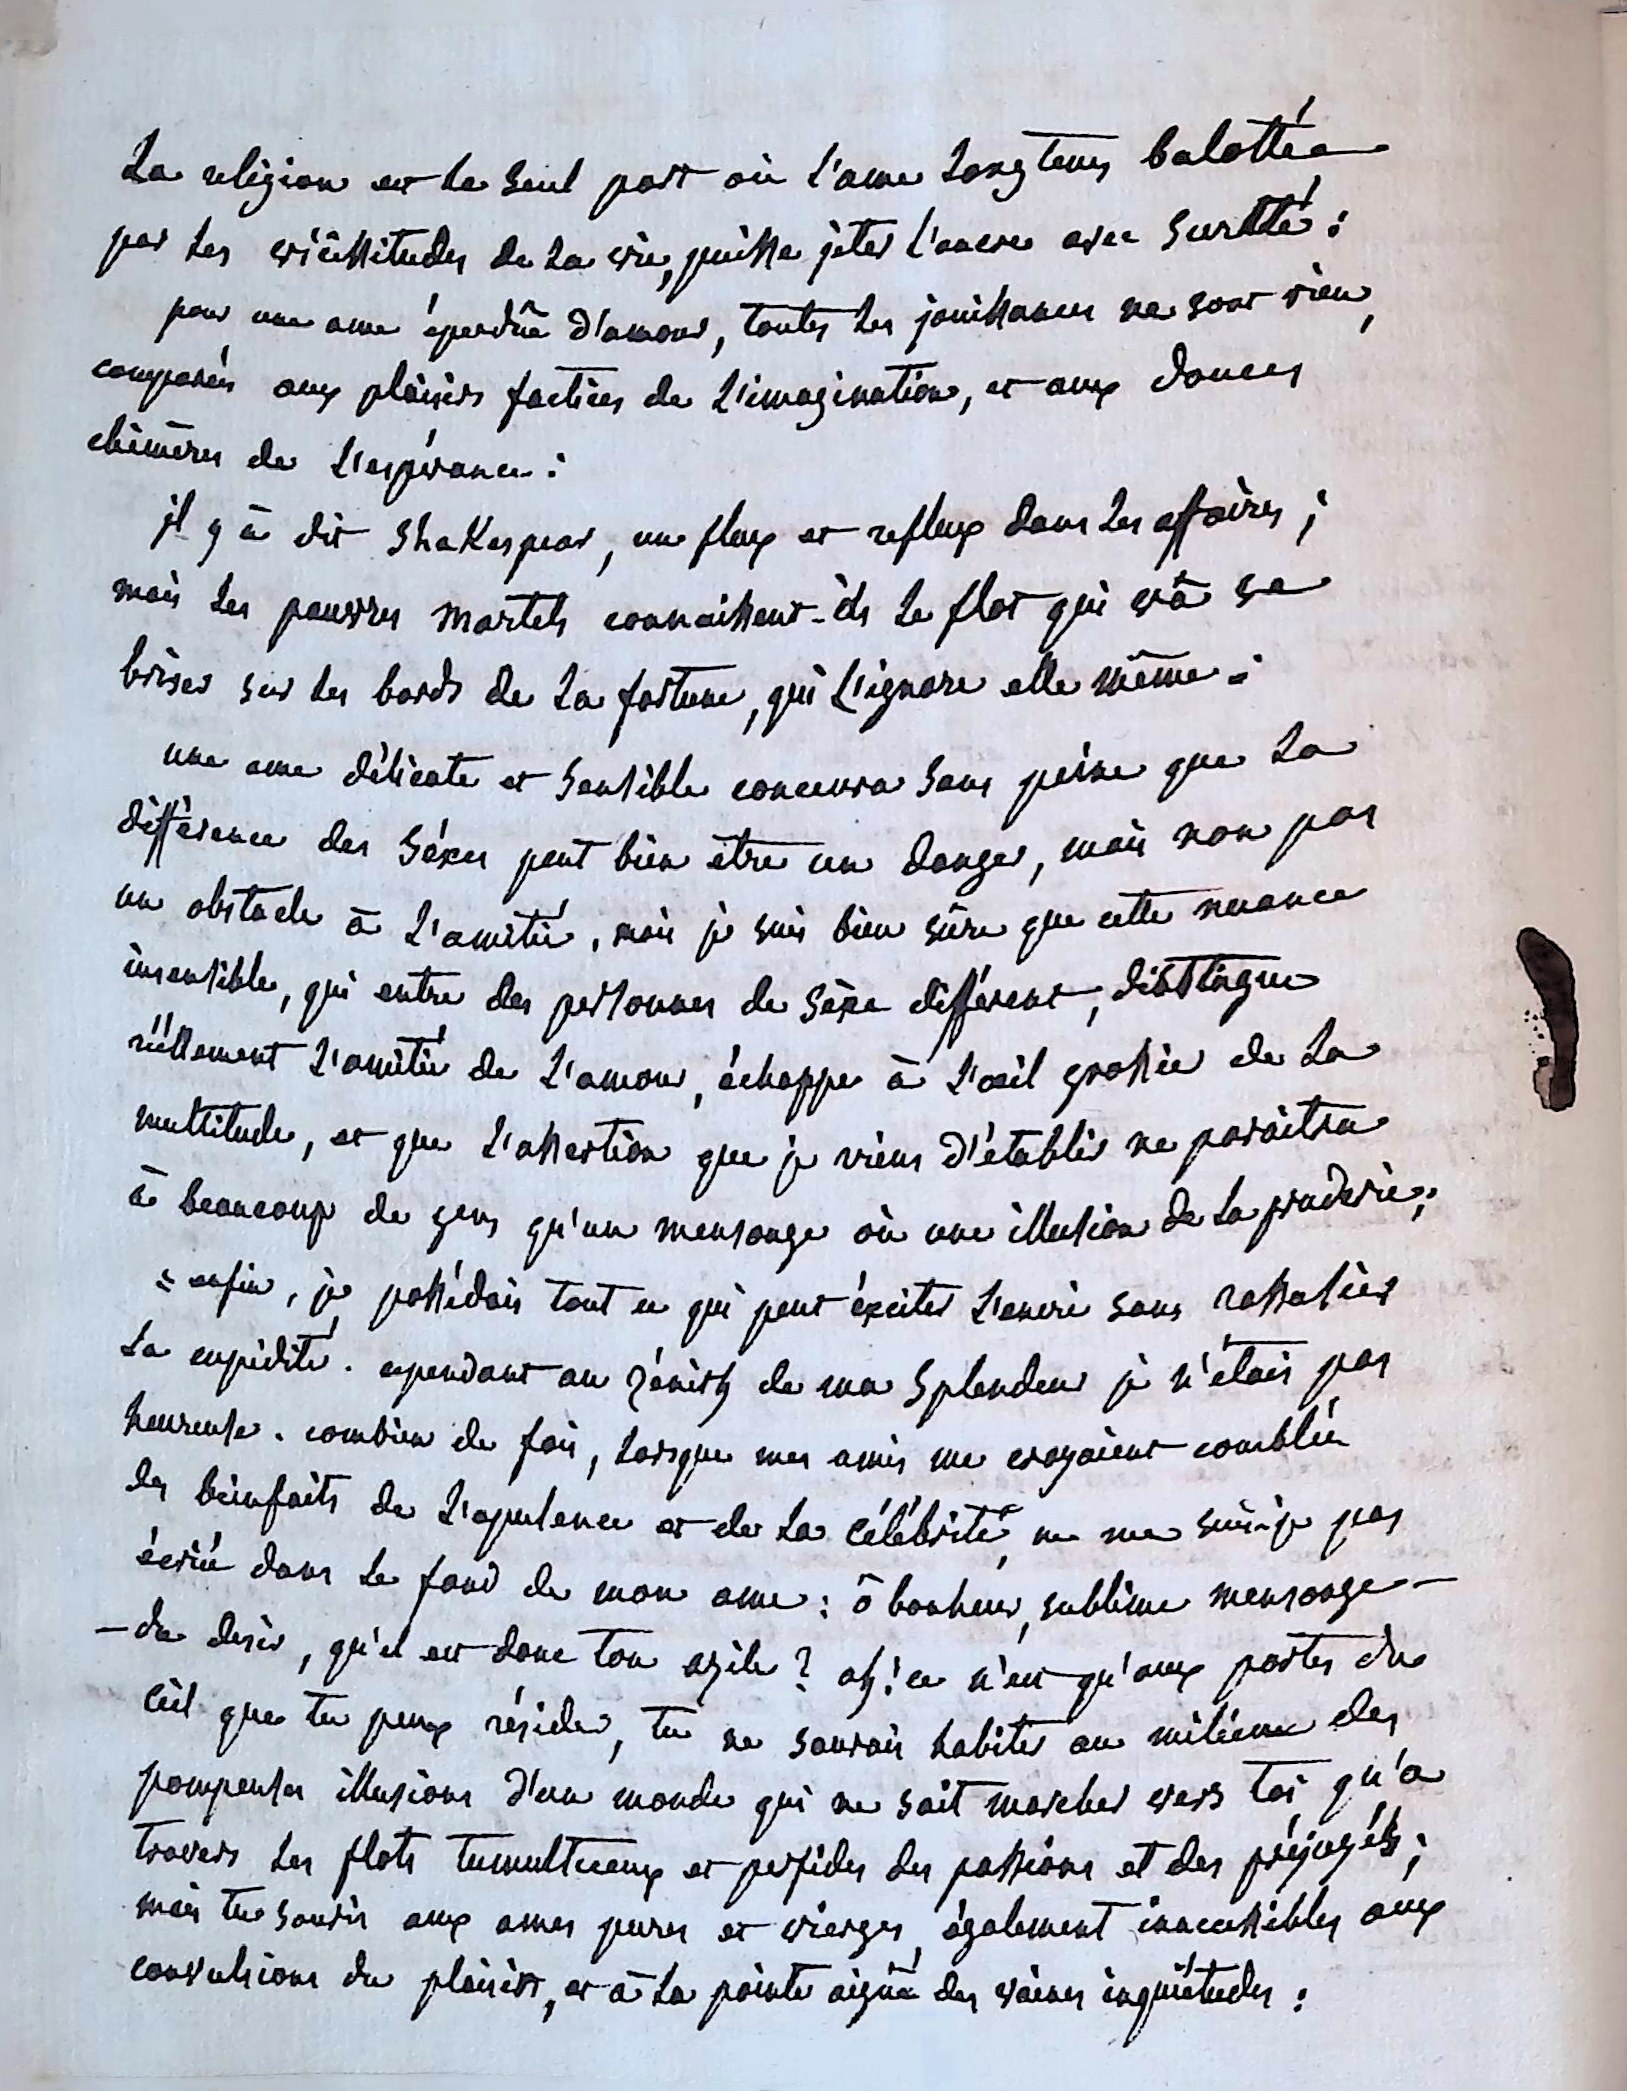 La religion est le seul port où l'ame longtems balottée
par les vicissitudes de la vie, puisse jeter l'ancre avec surtté :
pour une ame éperdûe d'amour, toutes les jouissances ne sont rien,
comparées aux plaisirs factices de l'imagination, et aux douces
chimères de l'espérance :
il y à dit Shakespear, un flux et reflux dans les affaires ;
mais les pauvres mortels connaissent-ils le flot qui và se
briser sur les bords de la fortune, qui l'ignore elle même :
une ame délicate et sensible concevra sans peine que la
différence des séxes peut bien être un danger, mais non pas
un obstacle à l'amitié, mais je suis bien sûre que cette nuance
insensible, qui entre des personnes de sèxe différent, distingue
réellement l'amitié de l'amour, échappe à l'œil grossier de la
multitude, et que l'assertion que je viens d'établir ne paraitra
à beaucoup de gens qu'un mensonge où une illusion de la pruderie ;
= enfin, je possédais tout ce qui peut éxciter l'envie sans rassasier
la cupidité. cependant au zénith de ma splendeur je n'étais pas
heureuse. combien de fois, lorsque mes amis me croyaient comblée
des bienfaits de l'opulence et de la célébrité, ne me suis-je pas
écriée dans le fond de mon ame : ô bonheur, sublime mensonge —
— du desir, qu'el est donc ton azile ? ah ! ce n'est qu'aux portes du
ciel que tu peux résider, tu ne saurais habiter au milieu des
pompeuses illusions d'un monde qui ne sait marcher vers toi qu'a
travers les flots tumultueux et perfides des passions et des préjugés ;
mais tu souris aux ames pures et vierges, également innaccessibles aux
convulsions du plaisir, et à la pointe aigüe des vaines inquiétudes :